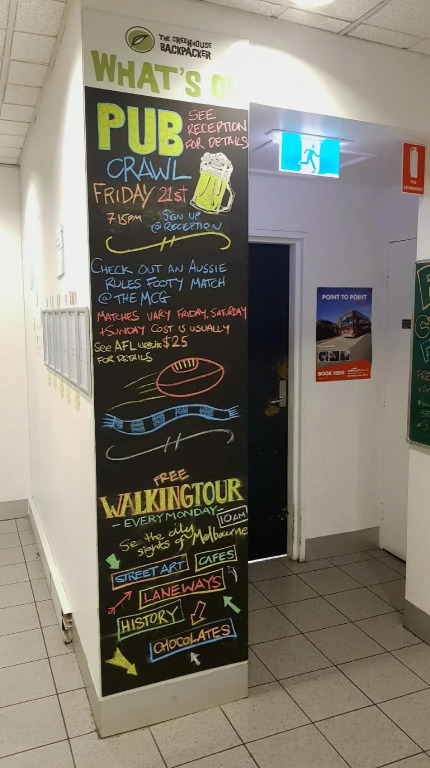 THE GREENHOUSE
BACKPACKER
WHAT'S O
PUB
CRAWL
SEE
RECEPTION
FOR DETAILS
FRIDAY 21st
7:15PM
SIGN UP
@RECEPTION
CHECK OUT AN AUSSIE
RULES FOOTY MATCH
@ THE MCG
MATCHES VARY FRIDAY, SATURDAY
+SUNDAY COST IS USUALLY
See AFL website $25
FOR DETAILS
FREE
WALKING TOUR
- EVERY MONDAY -
10AM
See the city
sights of Melbourne
STREET ART
CAFES
LANEWAYS
HISTORY
CHOCOLATES
POINT TO POINT
BOOK HERE
FIRE
EXTINGUISHER